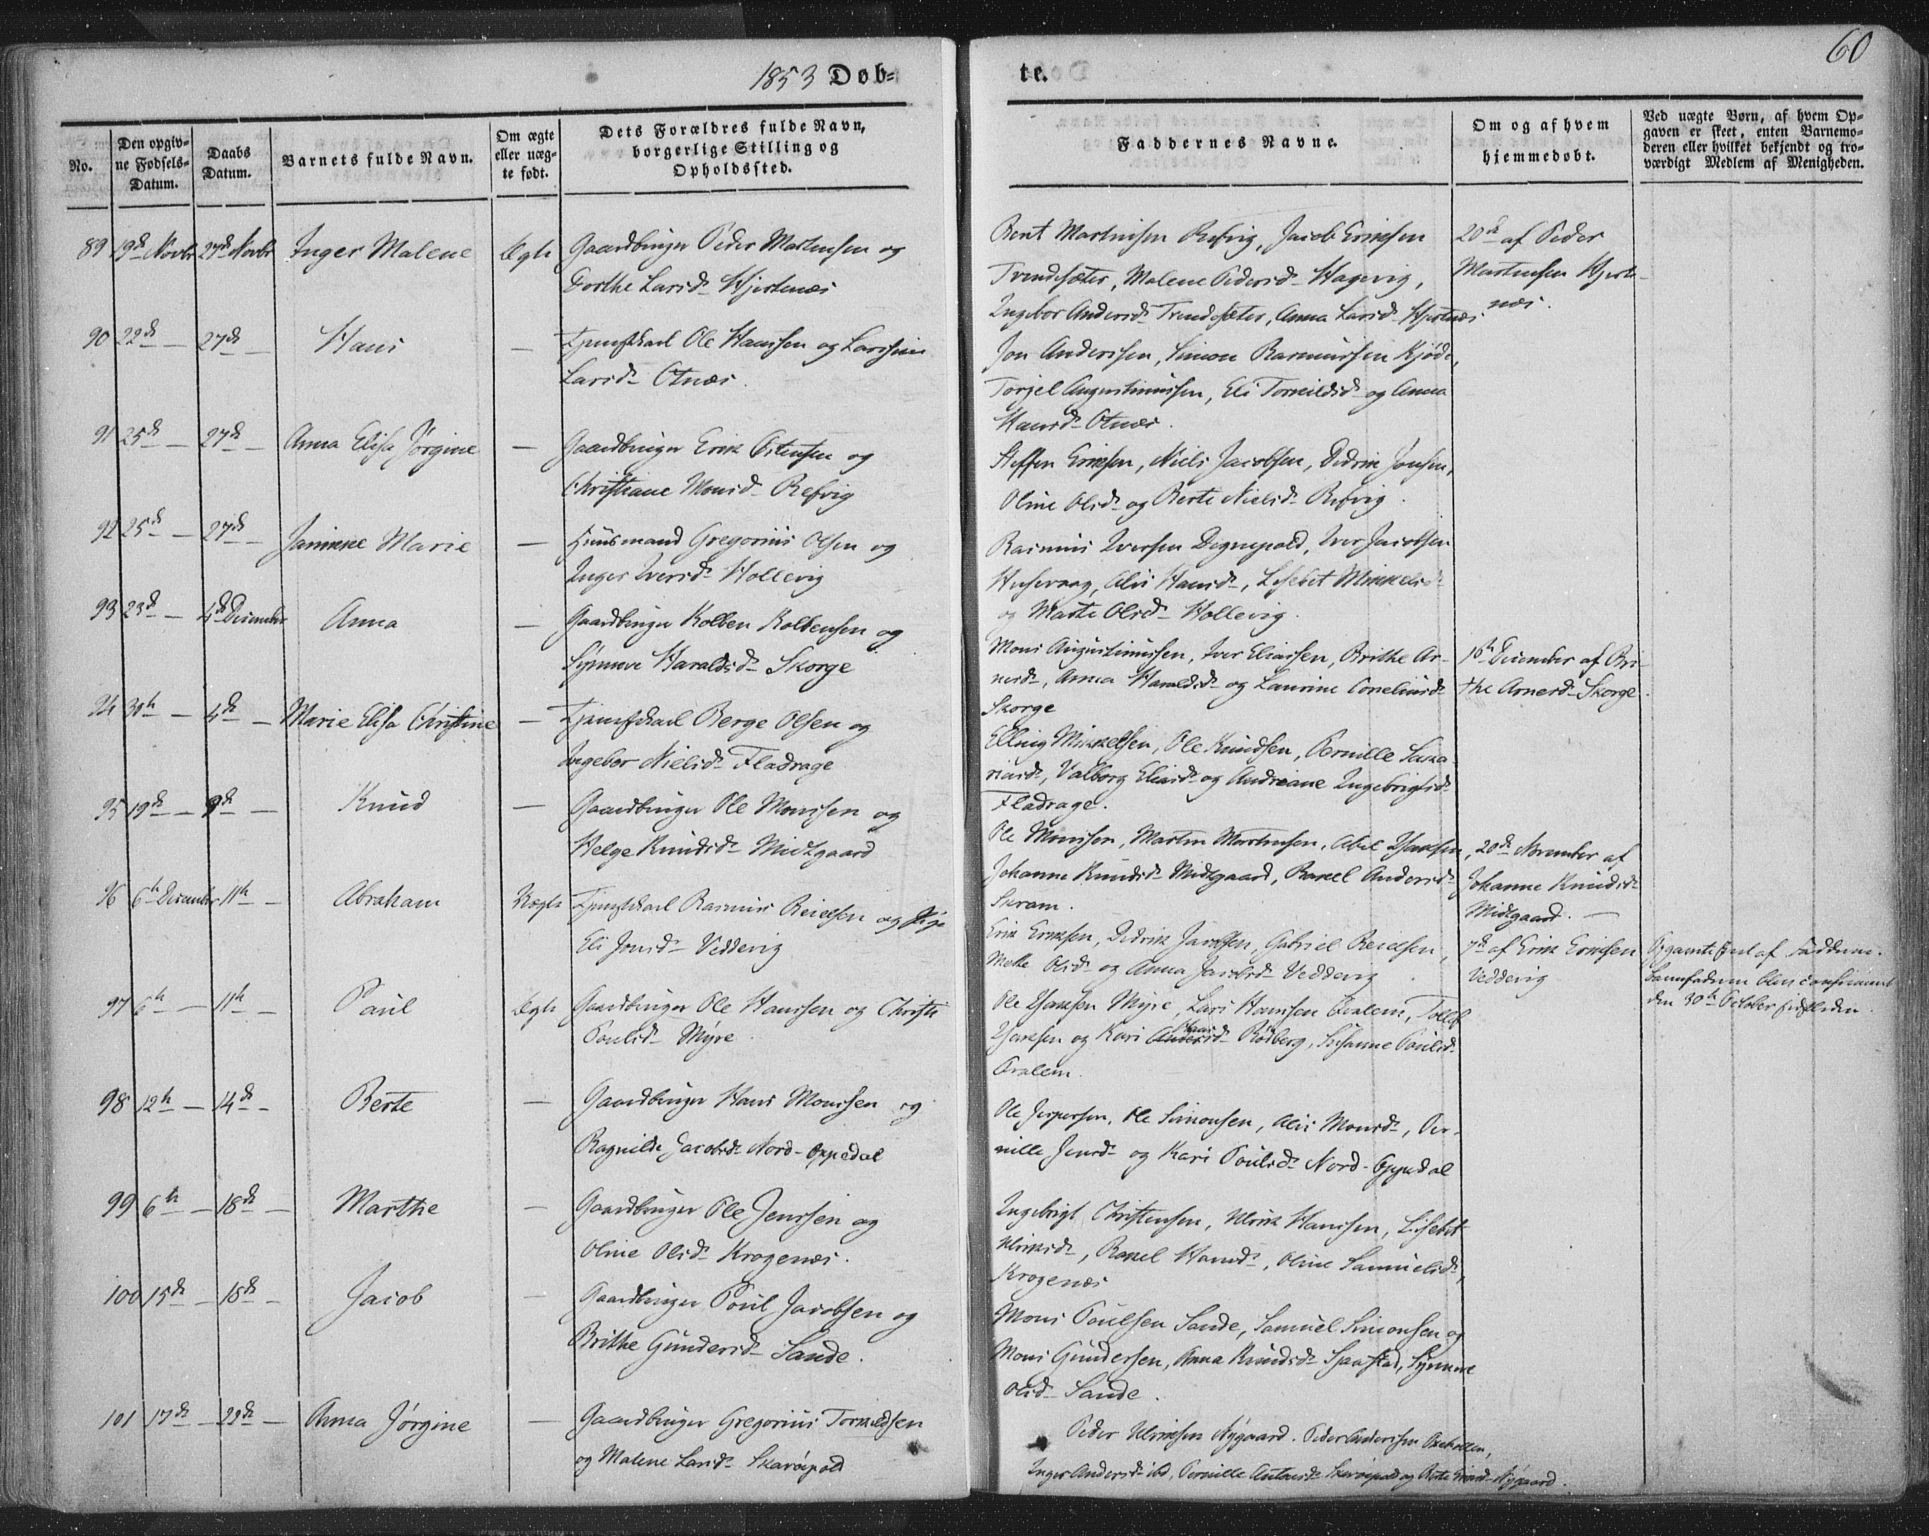 1853 Døb=
te.
60
No.
Den opgiv-
ne Fødsels-
Datum.
Daabs
Datum.
Barnets fulde Navn.
Om ægte
eller uæg-
te født.
Dets Forældres fulde Navn,
borgerlige Stilling og
Opholdssted.
Faddernes Navne.
Om og af hvem
hjemmedøbt.
Ved uægte Børn, af hvem Op-
gaven er skeet, enten Barnemo-
deren eller hvilket bekjendt og tro-
værdigt Medlem af Menigheden.
89 19de Novbr 27de Novbr Inger Malene Ægte Gaardbruger Peder Martensen og
Dorthe Larsd. Hjertenæs
Bent Martinsen Refvig, Jacob Eriksen
Trendesæter, Malene Pedersd. Hagevig,
Ingebor Andersd. Trendesæter, Anna Larsd. Hjertnæs
20de af Peder
Martensen Hjert-
næs.
90 22de 27de — Hans — Tjenestkarl Ole Hanssen og Larsine
Larsd. Otnæs.
Jon Anderssen, Simon Rasmussen Kjøde,
Torgel Augustinussen, Eli Torkildsd. og Anna
Hansd. Otnæs.
91 25de — 27de — Anna Elisa Jørgine — Gaardbruger Erik Ostensen og
Christiane Monsd. Refvig
Steffen Eriksen, Niels Jacobsen, Didrik Jonsen,
Oline Olsd. og Berte Nielsd. Refvig.
92 25de — 27de — Jannike Marie — Huusmand Gregorius Olsen og
Inger Iversd. Hollevig
Rasmus Iversen Degnepold, Iver Jacobsen
Husevaag, Alis Hansd., Lisebet Mikkelsd.
og Marte Olsd. Hollevig.
93 23de — 4de December Anna — Gaardbruger Kolben Kolbensen og
Synneve Haraldsd. Skorge
Mons Augustinussen, Iver Eliassen, Brithe Ar-
nesd., Anna Haraldsd. og Laurine Corneliusd.
Skorge
1ste December af Bri-
the Arnesd. Skorge.
94 30te — 4de — Marie Elisa Christine — Tjenestkarl Berge Olsen og
Ingebor Nielsd. Fladrage
Elling Mikkelsen, Ole Knudsen, Pernille Saka-
riasd., Valborg Eliasd. og Andreane Ingebrigtsd.
Fladrage.
95 19de — 9de — Knud — Gaardbruger Ole Monssen og
Helge Knudsd. Midtgaard
Ole Monssen, Martin Martinsen, Abel Isaksen,
Johanne Knudsd. Midtgaard, Rakel Andersd.
20de November af
Johanne Knudsd.
Midtgaard. —
96 6te December 11te — Abraham Uægte Tjenestkarl Rasmus Reielsen og Pige
Eli Jonsd. Veddevig
Erik Eriksen, Didrik Jacobsen, Gabriel Reielsen,
Mette Olsd. og Anna Jacobsd. Veddevig
7de af Erik Eriksen
Veddevig
af Fadderne.
Barnefaderen blev confirmeret
den 30te October
97 6te — 11te — Paul Ægte Gaardbruger Ole Hanssen og Christi
Poulsd. Myre.
Ole Isaksen Myre, Lars Hanssen Qvalem, Tollef
Isaksen og Kari Hansd. Rødberg, Susanne Poulsd.
Qvalem.
98 12te — 14de — Berte — Gaardbruger Hans Monssen og
Ragnilde Jacobsd. Nord-Oppedal
Ole Jespersen, Ole Simonsen, Alis Monsd., Per-
nille Jensd. og Kari Poulsd. Nord-Oppedal
99 6te — 18de — Marthe — Gaardbruger Ole Jenssen og
Oline Olsd. Krogenæs.
Ingebrigt Christensen, Ulrik Hanssen, Lisebet
Ulriksd., Rakel Hansd., Oline Samuelsd.,
Krogenæs
100 15de — 18de — Jacob — Gaardbruger Poul Jacobsen og
Brithe Gundersd. Sande.
Mons Poulsen Sande, Samuel Simonsen og
Mons Gundersen, Anna Knudsd. Sjaastad, Synneve
Olsd. Sande.
101 17de — 22de — Anna Jørgine — Gaardbruger Gregorius Torkildsen
og Malene Larsd. Skarøipold
Peder Ulriksen Nygaard. Peder Anderssen
Inger Andersd. ibd, Pernille Antonsd. Skarøipold og Berte Nygaard.